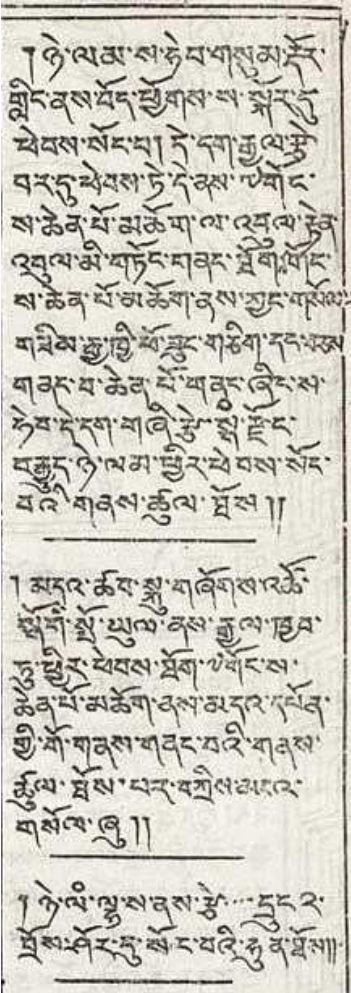 ། ཉེ་ལམ་ས་ཧེབ་གསུམ་རྡོར་
གླིང་ནས་བོད་ཕྱོགས་ས་སྐོར་དུ་
ཕེབས་སོང་བ། དེ་དག་རྒྱལ་རྩེ་
བར་དུ་ཕེབས་ཏེ་དེ་ནས་༧གོང་
ས་ཆེན་པོ་མཆོག་ལ་འབུལ་རྟེན་
འབུལ་མི་གཏོང་གནང་ཐོག༧གོང་
ས་ཆེན་པོ་མཆོག་ནས་ཀྱང་གསོལ་
གཟིམ་རྒྱ་ཁྲི་ཕོ་བྲང་གཅིག་དང་
གནང་བ་ཆེན་པོ་གནང་ཞིང་ས་
ཧེབ་དེ་དག་གཞི་རྩེ་སྤྱི་རྫོང་
བརྒྱུད་ཉེ་ལམ་ཕྱིར་ཕེབས་སོང་
བའི་གནས་ཚུལ་ཐོས།།
། མདའ་ཚབ་སྐུ་གཞོགས་འཚོ་
སྡོད་ སྤྲོ་ཡུལ་ནས་རྒྱལ་ཁབ་
ཏུ་ཕྱིར་ཕེབས་ཐོག་༧གོང་ས་
ཆེན་པོ་མཆོག་ནས་མདའ་དཔོན་
གྱི་གོ་གནས་གནང་བའི་གནས་
ཚུལ་ཐོས་པར་བཀྲིས་མངའ་
གསོལ་ཞུ།།
། ཉེ་ལཾ་ལྷ་ས་ནས་རྩེ་ … དྲུང་ར་
བྲོས་ཤོར་དུ་སོང་བའི་ཧུ་ན་ཐོས།།